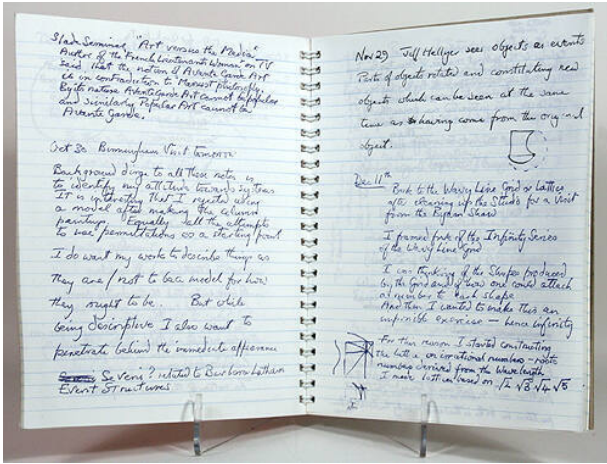 Slade Seminar "Art versus the Media"
Author of the French Lieutenants Woman on TV
said that the notion of Avante Garde Art
is in contradiction to Marxist philosophy.
By its nature Avante Garde Art cannot be popular
and similarly Popular Art cannot be
Avante Garde.
Oct 30 Birmingham Visit tomorrow
Background dirge to all these notes is
to identify my attitude towards systems
It is interesting that I rejected using
a model after making the column
paintings. Equally all the attempts
to use permutations as a starting point
I do want my works to describe things as
they are / not to be a model for how
they ought to be. But while
being descriptive I also want to
penetrate behind the immediate appearance
Sevens? related to Barbara Latham
Event Structures
Nov 29 Jeff Hellyer sees objects as events
Parts of objects rotated and constituting new
objects which can be seen at the same
time as having come from the original
object.
Dec 11th
Back to the Wavy Line Grid or Lattice
after cleaning up the Studio for a Visit
from the Show
I framed five of the Infinity Series
of the Wavy Line Grid
I am thinking of the Shapes produced
by the Grid and of how one could attach
a number to each shape
And then I wanted to make this an
infinite exercise – hence infinity
For this reason I started constructing
the lattice on irrational numbers – roots
numbers derived from the Wavelength
I made lattices based on √2 √3 √4 √5